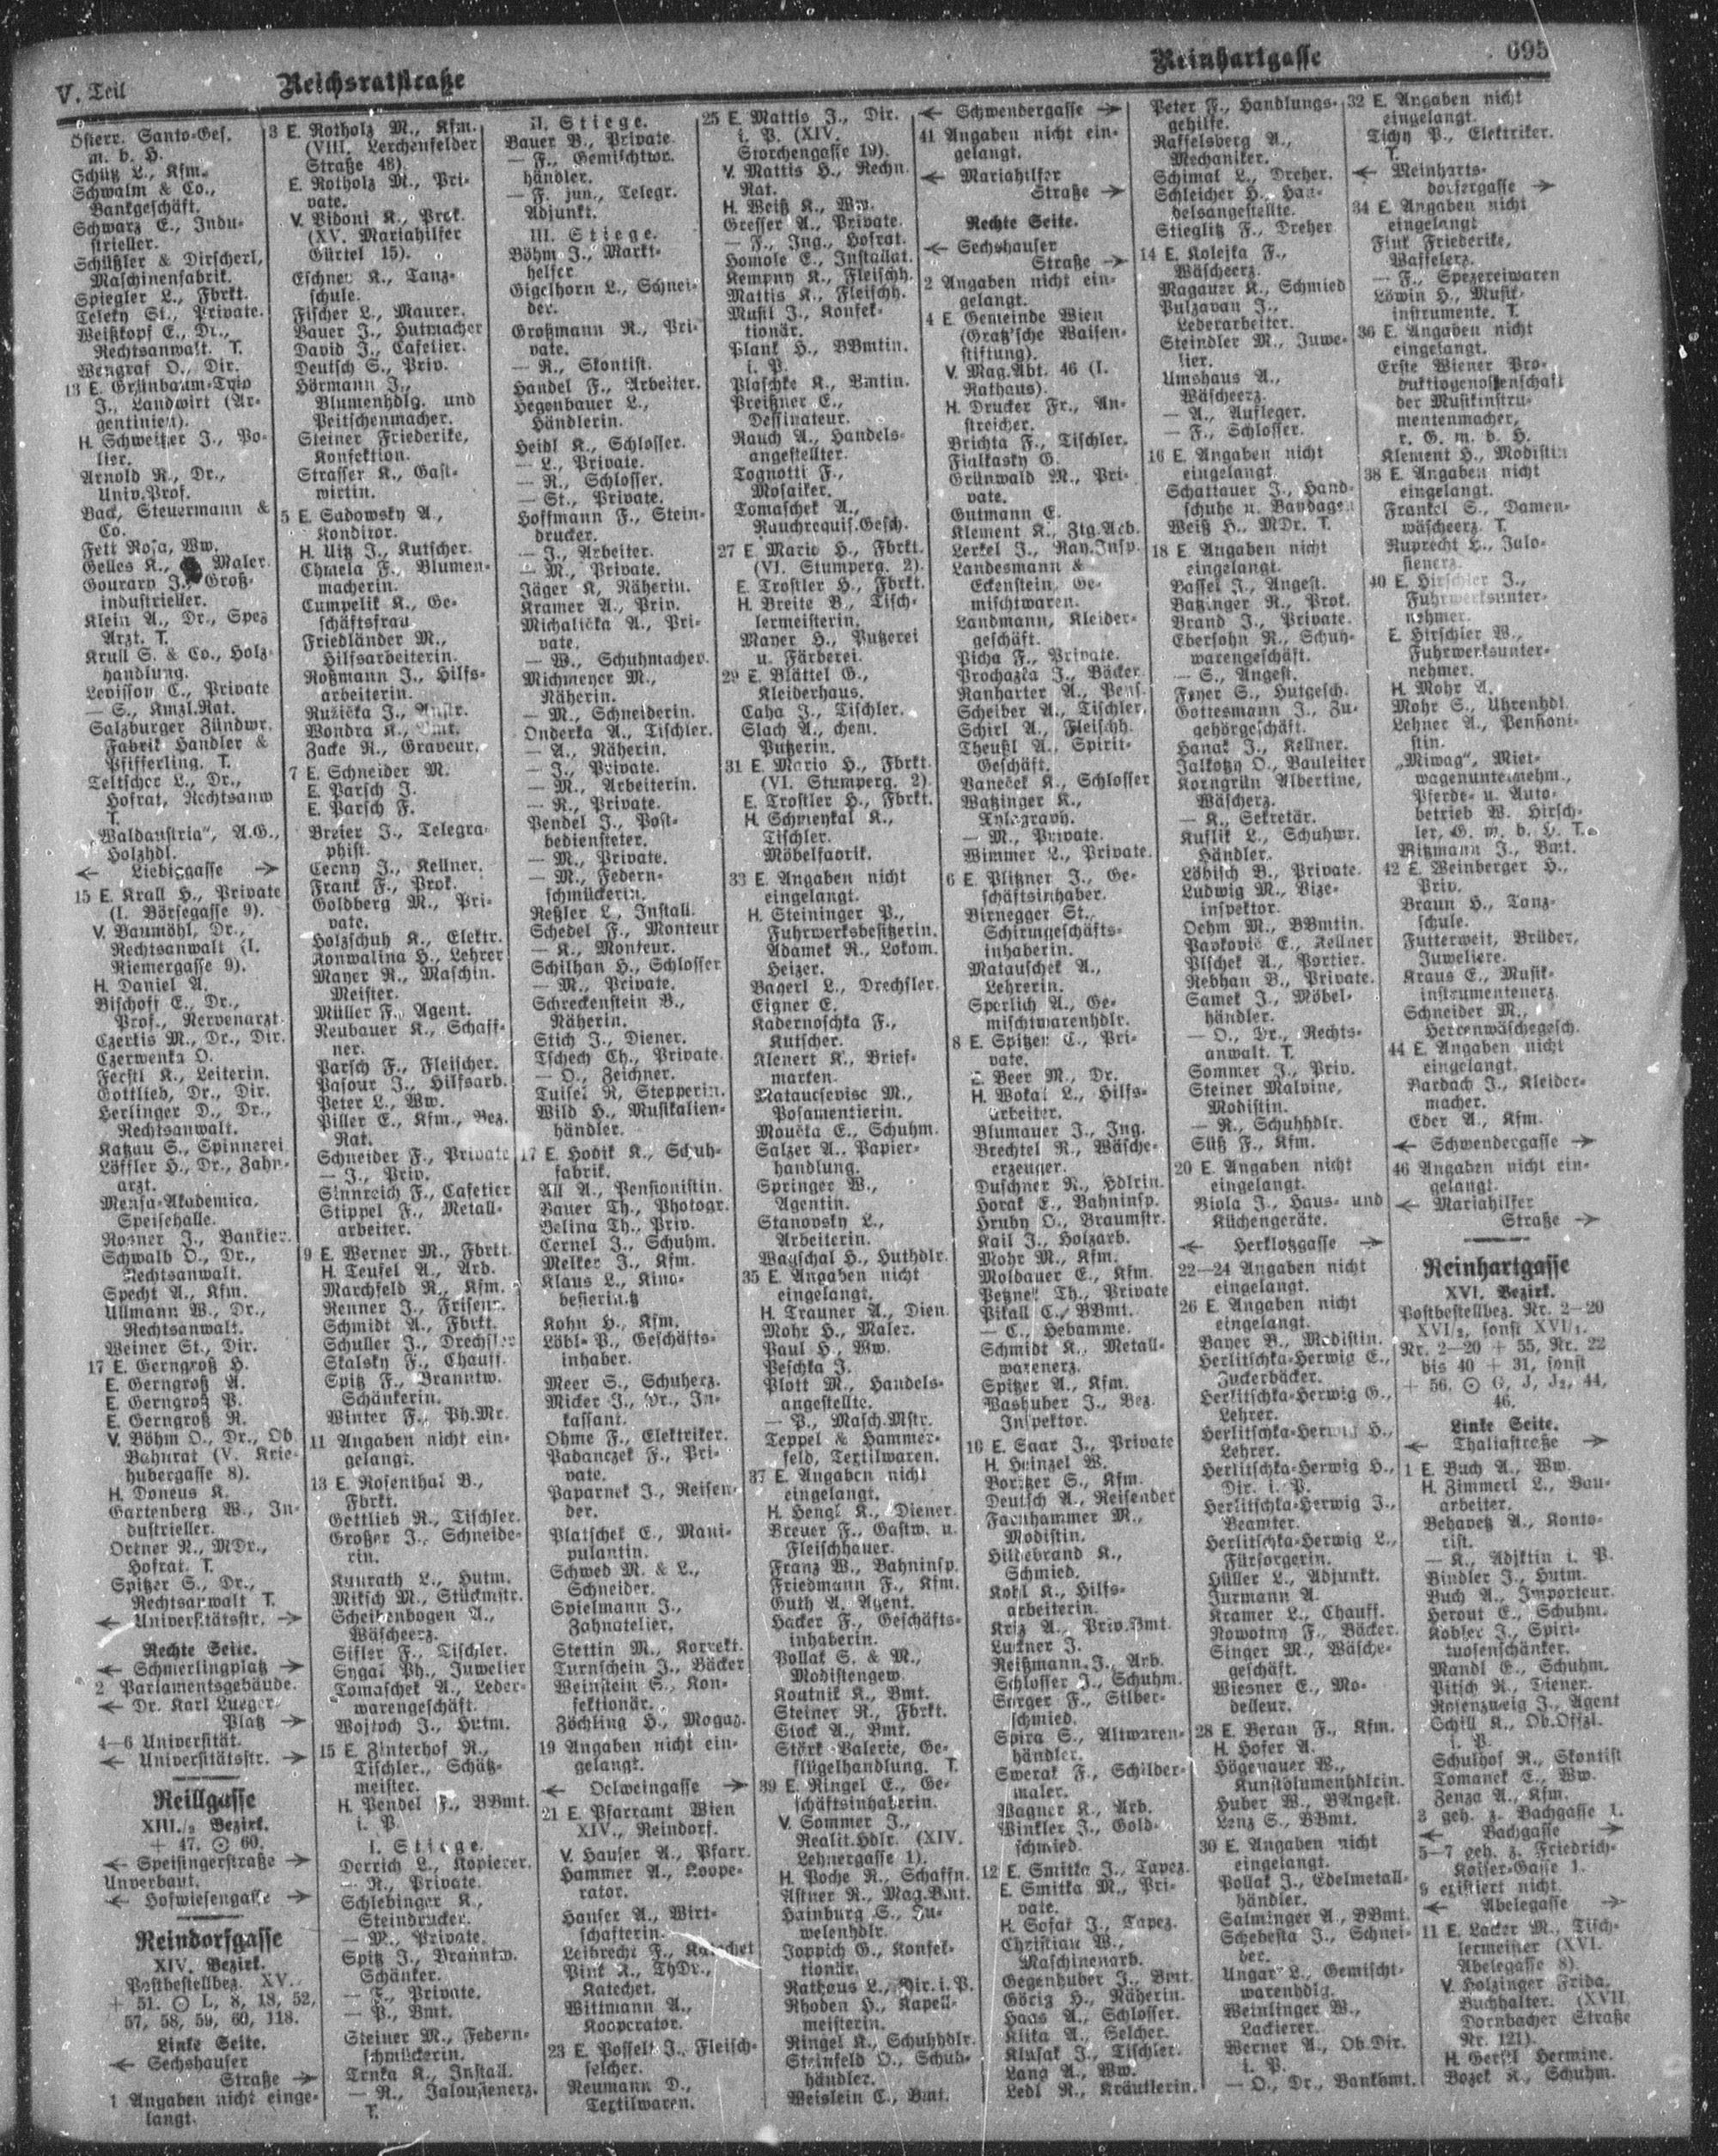 V. Teil
Reichsratstraße
Reinhartgasse
695
Österr. Santo-Ges.
m. b. H.
Schütz L., Kfm.
Schwalm & Co.,
Bankgeschäft.
Schwarz E., Indu-
strieller.
Schüßler & Dirscherl,
Maschinenfabrik.
Spiegler L., Fbrkt.
Teleky St., Private.
Weißkopf E., Dr.,
Rechtsanwalt. T.
Wengraf O., Dir.
13 E. Grünbaum-Tuio
J., Landwirt (Ar-
gentinien).
H. Schweitzer J., Po-
lier.
Arnold R., Dr.,
Univ.Prof.
Back, Steuermann &
Co.
Fett Rosa, Ww.
Gelles K., Maler.
Gourary J., Groß-
industrieller.
Klein A., Dr., Spez
Arzt. T.
Krull S. & Co., Holz-
handlung.
Levisson C., Private
— S., Kmzl.Rat.
Salzburger Zündwr.
Fabrik Handler &
Pfifferling. T.
Teltscher L., Dr.,
Hofrat, Rechtsanw
T.
„Waldaustria“, A.G.,
Holzhdl.
← Liebiggasse →
15 E. Krall H., Private
(I. Börsegasse 9).
V. Baumöhl, Dr.,
Rechtsanwalt (I.
Riemergasse 9).
H. Daniel A.
Bischoff E., Dr.,
Prof., Nervenarzt.
Czertis M., Dr., Dir.
Czerwenka O.
Ferstl K., Leiterin.
Gottlieb, Dr., Dir.
Herlinger D., Dr.,
Rechtsanwalt.
Katzau S., Spinnerei
Löffler H., Dr., Zahn-
arzt.
Mensa-Akademica,
Speisehalle.
Rosner J., Bankier.
Schwalb O., Dr.,
Rechtsanwalt.
Specht A., Kfm.
Ullmann W., Dr.,
Rechtsanwalt.
Weiner St., Dir.
17 E. Gerngroß H.
E. Gerngroß A.
E. Gerngroß P.
E. Gerngroß R.
V. Böhm O., Dr., Ob.
Bahnrat (V. Krie-
hubergasse 8).
H. Doneus K.
Gartenberg W., In-
dustrieller.
Ortner R., MDr.,
Hofrat. T.
Spitzer S., Dr.,
Rechtsanwalt T.
← Universitätsstr. →
Rechte Seite.
← Schmerlingplatz →
2 Parlamentsgebäude.
← Dr. Karl Lueger-
Platz →
4—6 Universität.
← Universitätsstr. →
Reillgasse
XIII./2 Bezirk.
+ 47. ⊙ 60.
← Speisingerstraße →
Unverbaut.
← Hofwiesengasse →
Reindorfgasse
XIV. Bezirk.
Postbestellbez. XV.
+ 51. ⊙ L, 8, 18, 52,
57, 58, 59, 60, 118.
Linke Seite.
← Sechshauser
Straße →
1 Angaben nicht einge-
langt.
3 E. Rotholz M., Kfm.
(VIII. Lerchenfelder
Straße 48).
E. Rotholz M., Pri-
vate.
V. Vidoni K., Prok.
(XV. Mariahilfer
Gürtel 15).
Eschner K., Tanz-
schule.
Fischer L., Maurer.
Bauer J., Hutmacher
David J., Cafetier.
Deutsch S., Priv.
Hörmann J.,
Blumenhdlg. und
Peitschenmacher.
Steiner Friederike,
Konfektion.
Strasser K., Gast-
wirtin.
5 E. Sadowsky A.,
Konditor.
H. Uitz J., Kutscher.
Chmela F., Blumen-
macherin.
Cumpelik K., Ge-
schäftsfrau
Friedländer M.,
Hilfsarbeiterin.
Roßmann J., Hilfs-
arbeiterin.
Ružička J., Anstr.
Wondra K., Bmt.
Zacke R., Graveur.
7 E. Schneider M.
E. Parsch J.
E. Parsch F.
Breier J., Telegra-
phist.
Cerny J., Kellner.
Frank F., Prok.
Goldberg M., Pri-
vate.
Holzschuh K., Elektr.
Konwalina H., Lehrer
Mayer R., Maschin.
Meister.
Müller F., Agent.
Neubauer K., Schaff-
ner.
Parsch F., Fleischer.
Pasour J., Hilfsarb.
Peter L., Ww.
Piller E., Kfm., Bez.
Rat.
Schneider F., Private
— J., Priv.
Sinnreich F., Cafetier
Stippel F., Metall-
arbeiter.
9 E. Werner M., Fbrkt.
H. Teufel A., Arb.
Marchfeld R., Kfm.
Renner J., Friseur.
Schmidt A., Fbrkt.
Schuller J., Drechsler
Skalsky F., Chauff.
Spitz F., Branntw.
Schänkerin.
Winter F., Ph.Mr.
11 Angaben nicht ein-
gelangt.
13 E. Rosenthal B.,
Fbrkt.
Gottlieb R., Tischler.
Großer J., Schneide-
rin.
Kunrath L., Hutm.
Miksch M., Stückmstr.
Scheibenbogen A.,
Wäscheerz.
Sifler F., Tischler.
Sygal Ph., Juwelier
Tomaschek A., Leder-
warengeschäft.
Wojtoch J., Hutm.
15 E. Zinterhof R.,
Tischler., Schätz-
meister.
H. Pendel F., BBmt.
i. P.
I. Stiege.
Derrich L., Kopierer.
— R., Private.
Schlebinger K.,
Steindrucker.
— M., Private.
Spitz J., Branntw.
Schänker.
— F., Private.
— P., Bmt.
Steiner M., Federn-
schmückerin.
Trnka K., Install.
— R., Jalousienerz.
T.
II. Stiege.
Bauer B., Private.
— F., Gemischtwr.
händler.
— F. jun., Telegr.
Adjunkt.
III. Stiege.
Böhm J., Markt-
helfer.
Gigelhorn L., Schnei-
der.
Großmann R., Pri-
vate.
— R., Skontist.
Handel F., Arbeiter.
Hegenbauer L.,
Händlerin.
Heidl K., Schlosser.
— L., Private.
— R., Schlosser.
— St., Private.
Hoffmann F., Stein-
drucker.
— J., Arbeiter.
— M., Private.
Jäger K., Näherin.
Kramer A., Priv.
Michalička A., Pri-
vate.
— W., Schuhmacher.
Michmeyer M.,
Näherin.
— M., Schneiderin.
Onderka A., Tischler.
— A., Näherin.
— J., Private.
— M., Arbeiterin.
— R., Private.
Pendel J., Post-
bediensteter.
— M., Private.
— M., Federn-
schmückerin.
Reßler L., Install.
Schedel F., Monteur
— K., Monteur.
Schilhan H., Schlosser
— M., Private.
Schreckenstein B.,
Näherin.
Stich J., Diener.
Tschech Ch., Private.
— O., Zeichner.
Tuisel R., Stepperin.
Wild H., Musikalien-
händler.
17 E. Hodik K., Schuh-
fabrik.
All A., Pensionistin.
Bauer Th., Photogr.
Belina Th., Priv.
Cernel J., Schuhm.
Melker J., Kfm.
Klaus L., Kino-
besitzerin.
Kohn H., Kfm.
Löbl P., Geschäfts-
inhaber.
Meer S., Schuherz.
Micker J., Dr., In-
kassant.
Ohme F., Elektriker.
Padanczek F., Pri-
vate.
Paparnek J., Reisen-
der.
Platschek E., Mani-
pulantin.
Schwed M. & L.,
Schneider.
Spielmann J.,
Zahnatelier.
Stettin M., Korrekt.
Turnschein J., Bäcker
Weinstein S., Kon-
fektionär.
Zöchling H., Magaz.
19 Angaben nicht ein-
gelangt.
← Oelweingasse →
21 E. Pfarramt Wien
XIV., Reindorf.
V. Hauser A., Pfarr.
Hammer A., Koope-
rator.
Hauser A., Wirt-
schafterin.
Leibrecht F., Katechet
Pink A., ThDr.,
Katechet.
Wittmann A.,
Kooperator.
23 E. Posselt J., Fleisch-
selcher.
Neumann D.,
Textilwaren.
25 E. Mattis J., Dir.
i. P. (XIV.
Storchengasse 19).
V. Mattis H., Rechn.
Rat.
H. Weiß K., Ww.
Gresser A., Private.
— F., Ing., Hofrat.
Homole E., Installat.
Kempny K., Fleischh.
Mattis K., Fleischh.
Musil J., Konfek-
tionär.
Plank H., BBmtin.
i. P.
Plaschke K., Bmtin.
Preißner E.,
Dessinateur.
Rauch A., Handels-
angestellter.
Tognotti F.,
Mosaiker.
Tomaschek A.,
Rauchrequis.Gesch.
27 E. Mario H., Fbrkt.
(VI. Stumperg. 2).
E. Trostler H., Fbrkt.
H. Breite B., Tisch-
lermeisterin.
Mayer H., Putzerei
u. Färberei.
29 E. Blättel G.,
Kleiderhaus.
Caha J., Tischler.
Slach A., chem.
Putzerin.
31 E. Mario H., Fbrkt.
(VI. Stumperg. 2).
E. Trostler H., Fbrkt.
H. Schmeykal K.,
Tischler.
Möbelfabrik.
33 E. Angaben nicht
eingelangt.
H. Steininger P.,
Fuhrwerksbesitzerin.
Adamek R., Lokom.
Heizer.
Bayerl L., Drechsler.
Eigner E.
Kadernoschka F.,
Kutscher.
Klenert K., Brief-
marken.
Mataucsevisc M.,
Posamentierin.
Moučka E., Schuhm.
Salzer A., Papier-
handlung.
Springer W.,
Agentin.
Stanovsky L.,
Arbeiterin.
Wayschal H., Huthdlr.
35 E. Angaben nicht
eingelangt.
H. Trauner A., Dien.
Mohr H., Maler.
Paul H., Ww.
Peschka J.
Plott M., Handels-
angestellte.
— P., Masch.Mstr.
Teppel & Hammer-
feld, Textilwaren.
37 E. Angaben nicht
eingelangt.
H. Hengl K., Diener.
Breuer F., Gastw. u.
Fleischhauer.
Franz W., Bahninsp.
Friedmann F., Kfm.
Guth A., Agent.
Hacker F., Geschäfts-
inhaberin.
Pollak S. & M.,
Modistengew.
Koutnik K., Bmt.
Steiner R., Fbrkt.
Stock A., Bmt.
Störk Valerie, Ge-
flügelhandlung. T.
39 E. Ringel E., Ge-
schäftsinhaberin.
V. Sommer J.,
Realit.Hdlr. (XIV.
Lehnergasse 1).
H. Poche R., Schaffn.
Astner R., Mag.Bmt.
Hainburg S., Ju-
welenhdlr.
Joppich G., Konfek-
tionär.
Rathaus L., Dir. i. P.
Rhoden H., Kapell-
meisterin.
Ringel K., Schuhhdlr.
Steinfeld O., Schuh-
händler.
Weislein C., Bmt.
← Schwendergasse →
41 Angaben nicht ein-
gelangt.
← Mariahilfer
Straße →
Rechte Seite.
← Sechshauser
Straße →
2 Angaben nicht ein-
gelangt.
4 E. Gemeinde Wien
(Gratz'sche Waisen-
stiftung).
V. Mag.Abt. 46 (I.
Rathaus).
H. Drucker Fr., An-
streicher.
Brichta F., Tischler.
Fialkasky G.
Grünwald M., Pri-
vate.
Gutmann E.
Klement K., Ztg.Arb.
Lerkel J., Ray.Insp.
Landesmann &
Eckenstein, Ge-
mischtwaren.
Landmann, Kleider-
geschäft.
Picha F., Private.
Prochazka J., Bäcker
Ranharter A., Pens.
Scheider A., Tischler.
Schirl A., Fleischh.
Theußl A., Spirit-
Geschäft.
Vaneček K., Schlosser
Watzinger K.,
Xylograph.
— M., Private.
Wimmer L., Private.
6 E. Plitzner J., Ge-
schäftsinhaber.
Birnegger St.,
Schirmgeschäfts-
inhaberin.
Matauschek A.,
Lehrerin.
Sperlich A., Ge-
mischtwarenhdlr.
8 E. Spitzer C., Pri-
vate.
E. Beer M., Dr.
H. Wokal L., Hilfs-
arbeiter.
Blumauer J., Ing.
Brechtel R., Wäsche-
erzeuger.
Duschner R., Hdlrin.
Horak E., Bahninsp.
Hruby O., Braumstr.
Kail J., Holzarb.
Mohr M., Kfm.
Moldauer E., Kfm.
Petznek Th., Private
Pikall C., BBmt.
— C., Hebamme.
Schmidt K., Metall-
warenerz.
Spitzer A., Kfm.
Washuber J., Bez.
Inspektor.
10 E. Saar J., Private
H. Heinzel W.
Boritzer S., Kfm.
Deutsch A., Reisender
Farnhammer M.,
Modistin.
Hildebrand K.,
Schmied.
Kohl K., Hilfs-
arbeiterin.
Kriz A., Priv.Bmt.
Luckner J.
Reißmann J., Arb.
Schlosser J., Schuhm.
Sorger F., Silber-
schmied.
Spira S., Altwaren-
händler.
Swerak F., Schilder-
maler.
Wagner K., Arb.
Winkler J., Gold-
schmied.
12 E. Smitka J., Tapez.
E. Smitka M., Pri-
vate.
H. Sofar J., Tapez.
Christian W.,
Maschinenarb.
Gegenhuber J., Bmt.
Göriz H., Näherin.
Haas A., Schlosser.
Klika A., Selcher.
Klusak J., Tischler.
Lang A., Ww.
Ledl R., Kräutlerin.
Peter F., Handlungs-
gehilfe.
Raffelsberg A.,
Mechaniker.
Schimal L., Dreher.
Schleicher H., Han-
delsangestellte.
Stieglitz F., Dreher
14 E. Kolejka F.,
Wäscheerz.
Magauer K., Schmied
Pulzavan J.,
Lederarbeiter.
Steindler M., Juwe-
lier.
Umshaus A.,
Wäscheerz.
— A., Aufleger.
— F., Schlosser.
16 E. Angaben nicht
eingelangt.
Schattauer J., Hand-
schuhe u. Bandagen
Weiß H., MDr. T.
18 E. Angaben nicht
eingelangt.
Bassel J., Angest.
Batzinger R., Prok.
Brand J., Private.
Ebersohn R., Schuh-
warengeschäft.
— S., Angest.
Feyer S., Hutgesch.
Gottesmann J., Zu-
gehörgeschäft.
Hanak J., Kellner.
Jalkotzy O., Bauleiter
Korngrün Albertine,
Wäscherz.
— K., Sekretär.
Kuflik L., Schuhwr.
Händler.
Löbisch B., Private.
Ludwig M., Vize-
inspektor.
Oehm M., BBmtin.
Pavkovic E., Kellner
Plschek A., Portier.
Rebhan B., Private.
Samek J., Möbel-
händler.
— O., Dr., Rechts-
anwalt. T.
Sommer J., Priv.
Steiner Malvine,
Modistin.
— R., Schuhhdlr.
Süß F., Kfm.
20 E. Angaben nicht
eingelangt.
Viola J., Haus- und
Küchengeräte.
← Herklotzgasse →
22—24 Angaben nicht
eingelangt.
26 E. Angaben nicht
eingelangt.
Bayer B., Modistin.
Herlitschka-Herwig E.,
Zuckerbäcker.
Herlitschka-Herwig G.,
Lehrer.
Herlitschka-Herwig H.,
Lehrer.
Herlitschka-Herwig H.,
Dir. i. P.
Herlitschka-Herwig J.,
Beamter.
Herlitschka-Herwig L.,
Fürsorgerin.
Hüller L., Adjunkt.
Jurmann A.
Kramer L., Chauff.
Nowotny F., Bäcker.
Singer M., Wäsche-
geschäft.
Wiesner E., Mo-
delleur.
28 E. Beran F., Kfm.
H. Hofer A.
Högenauer W.,
Kunstblumenhdlrin.
Huber W., BAngest.
Lenz S., BBmt.
30 E. Angaben nicht
eingelangt.
Pollak J., Edelmetall-
händler.
Salminger A., BBmt.
Schebesta J., Schnei-
der.
Ungar L., Gemischt-
warenhdlg.
Weinlinger W.,
Lackierer.
Werner A., Ob.Dir.
i. P.
— O., Dr., Bankbmt.
32 E. Angaben nicht
eingelangt.
Tichy P., Elektriker.
T.
← Meinharts-
dorfergasse →
34 E. Angaben nicht
eingelangt
Fink Friederike,
Waffelerz.
— F., Spezereiwaren
Löwin H., Musik-
instrumente. T.
36 E. Angaben nicht
eingelangt.
Erste Wiener Pro-
duktivgenossenschaft
der Musikinstru-
mentenmacher,
r. G. m. b. H.
Klement H., Modistin
38 E. Angaben nicht
eingelangt.
Frankel S., Damen-
wäscheerz. T.
Ruprecht L., Jalo-
sienerz.
40 E. Hirschler J.,
Fuhrwerksunter-
nehmer.
E. Hirschler W.,
Fuhrwerksunter-
nehmer.
H. Mohr A.
Mohr S., Uhrenhdl.
Lehner A., Pensioni-
stin.
„Miwag“, Miet-
wagenunternehm.,
Pferde- u. Auto-
betrieb W. Hirsch-
ler, G. m. b. H. T.
Witzmann J., Bmt.
42 E. Weinberger H.,
Priv.
Braun H., Tanz-
schule.
Futterweit, Brüder,
Juweliere.
Kraus E., Musik-
instrumentenerz.
Schneider M.,
Herrenwäschegesch.
44 E. Angaben nicht
eingelangt.
Bardach J., Kleider-
macher.
Eder A., Kfm.
← Schwendergasse →
46 Angaben nicht ein-
gelangt.
← Mariahilfer
Straße →
Reinhartgasse
XVI. Bezirk.
Postbestellbez. Nr. 2—20
XVI/2, sonst XVI/1.
Nr. 2—20 + 55, Nr. 22
bis 40 + 31, sonst
+ 56. ⊙ G, J, J2, 44,
46.
Linke Seite.
← Thaliastraße →
1 E. Buch A., Ww.
H. Zimmerl L., Bau-
arbeiter.
Behavetz A., Konto-
rist.
— K., Adjktin i. P.
Bindler J., Hutm.
Buch A., Importeur.
Herout E., Schuhm.
Kobler J., Spiri-
tuosenschänker.
Mandl E., Schuhm.
Pitsch R., Diener.
Rosenzweig J., Agent
Schill K., Ob.Offzl.
i. P.
Schulhof R., Skontist
Tomanek C., Ww.
Zenza A., Kfm.
3 geh. z. Bachgasse 1.
← Bachgasse →
5—7 geh. z. Friedrich-
Kaiser-Gasse 1.
9 existiert nicht.
← Abelegasse →
11 E. Lacker M., Tisch-
lermeister (XVI.
Abelegasse 8).
V. Holzinger Frida,
Buchhalter. (XVII.
Dornbacher Straße
Nr. 121).
H. Gerstl Hermine.
Bozek K., Schuhm.